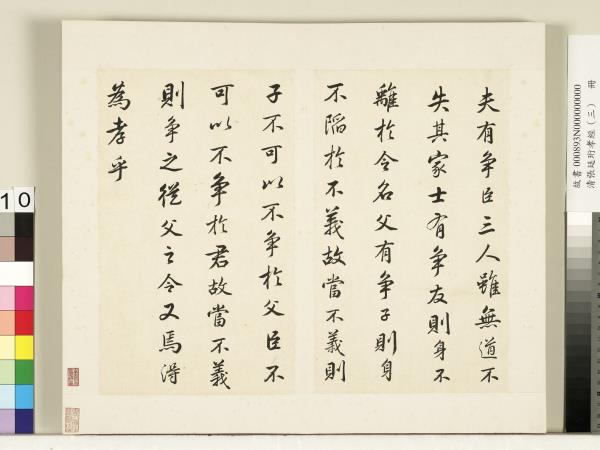 夫有爭臣三人雖無道不
失其家士有爭友則身不
離於令名父有爭子則身
不陷於不義故當不義則
子不可以不爭於父臣不
可以不爭於君故當不義
則爭之從父之令又焉得
為孝乎
故書000893N000000000
清張廷珩孝經(三) 冊
10